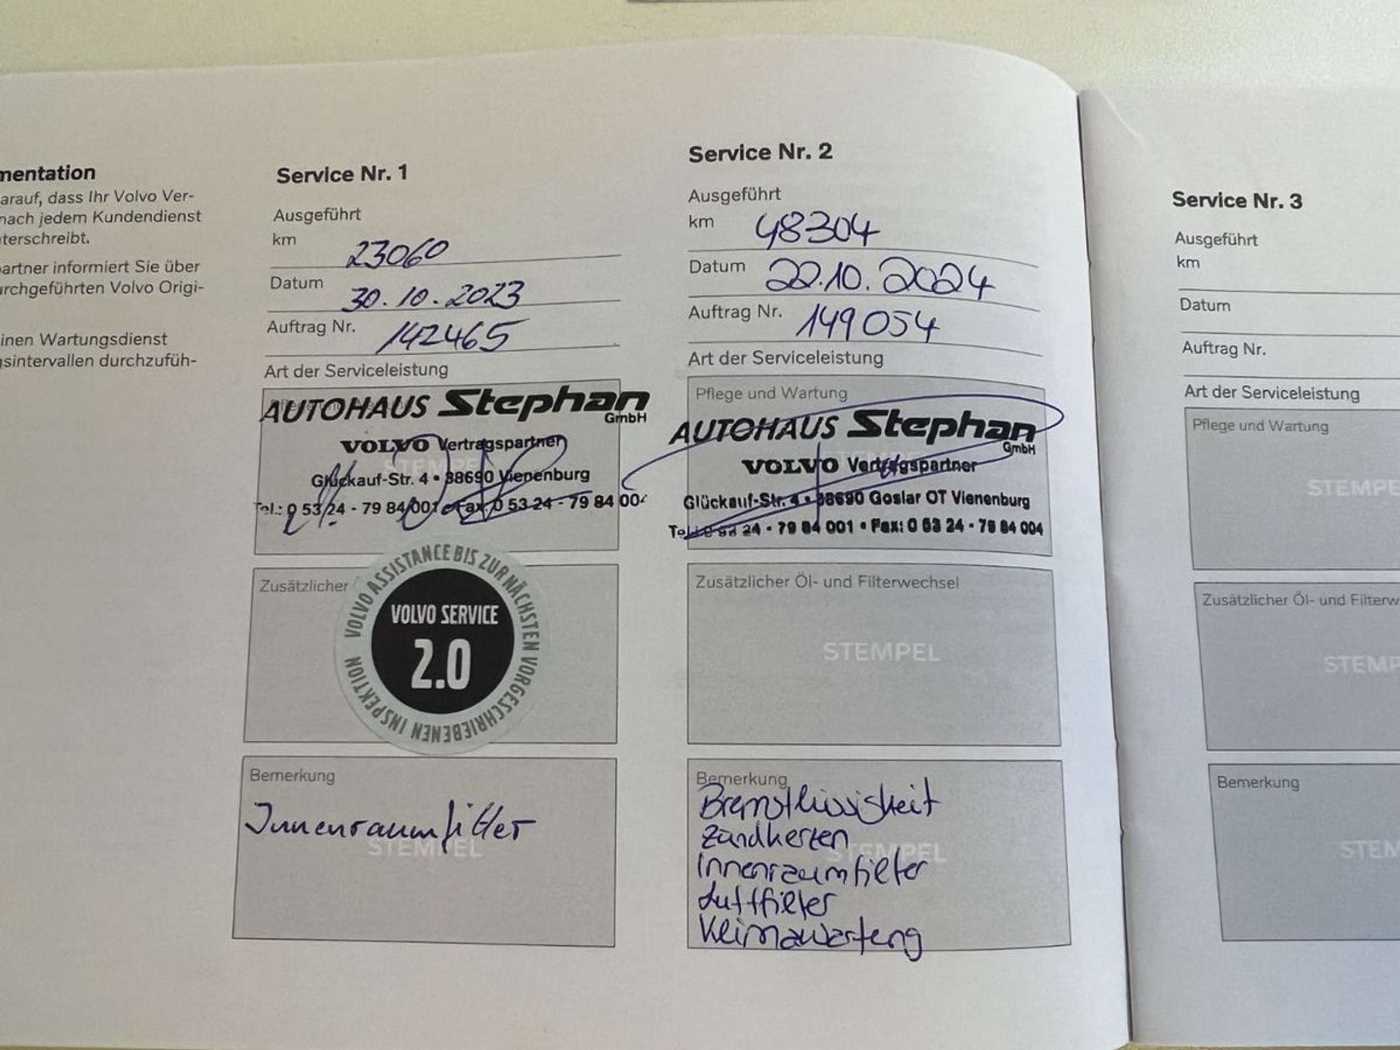 mentation
arauf, dass Ihr Volvo Ver-
nach jedem Kundendienst
terschreibt.
artner informiert Sie über
rchgeführten Volvo Origi-
inen Wartungsdienst
gsintervallen durchzufüh-
Service Nr. 1
Ausgeführt
km 23060
Datum 30.10.2023
Auftrag Nr. 142465
Art der Serviceleistung
AUTOHAUS Stephan
GmbH
VOLVO Vertragspartner
Glückauf-Str. 4 • 38690 Vienenburg
Tel.: 0 53 24 - 79 84 001 • Fax: 0 53 24 - 79 84 004
Zusätzlicher
VOLVO ASSISTANCE BIS ZUR NÄCHSTEN VORGESCHRIEBENEN INSPEKTION
VOLVO SERVICE
2.0
Bemerkung
Innenraumfilter
STEMPEL
Service Nr. 2
Ausgeführt
km 48304
Datum 22.10.2024
Auftrag Nr. 149054
Art der Serviceleistung
Pflege und Wartung
AUTOHAUS Stephan
GmbH
VOLVO Vertragspartner
Glückauf-Str. 4 • 38690 Goslar OT Vienenburg
Tel.: 0 53 24 - 79 84 001 • Fax: 0 53 24 - 79 84 004
Zusätzlicher Öl- und Filterwechsel
STEMPEL
Bemerkung
Bremsflüssigkeit
Zündkerzen
Innenraumfilter
STEMPEL
Luftfilter
Klimawartung
Service Nr. 3
Ausgeführt
km
Datum
Auftrag Nr.
Art der Serviceleistung
Pflege und Wartung
STEMPE
Zusätzlicher Öl- und Filterw
STEMP
Bemerkung
STEM